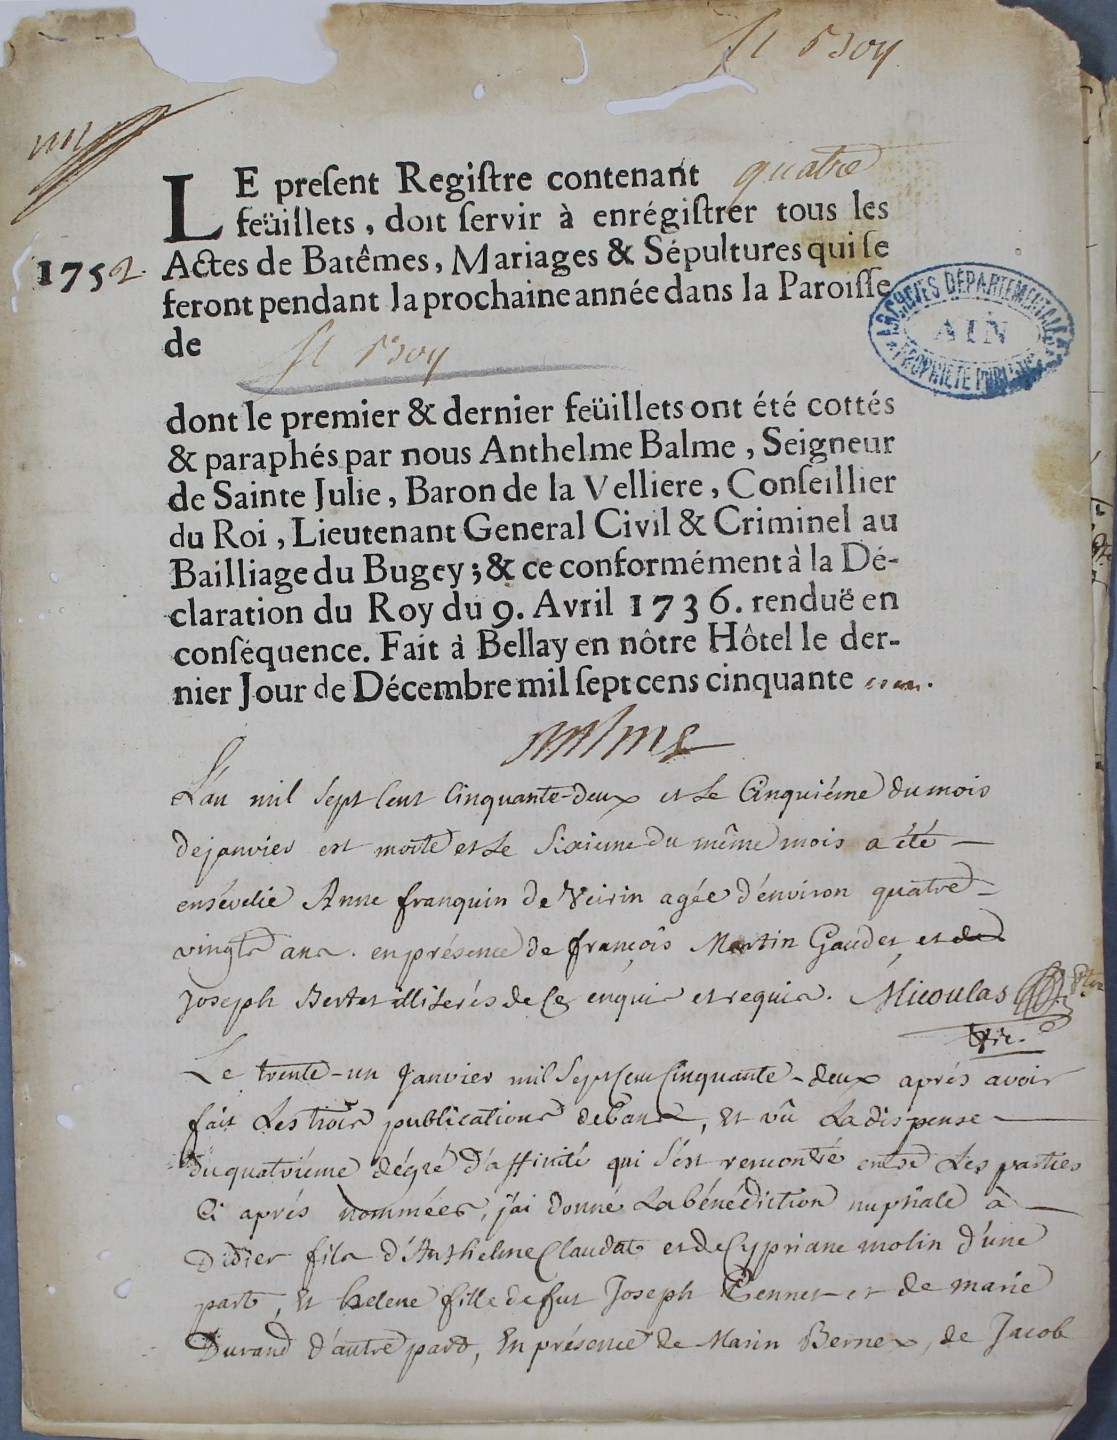 St Boy
LE preſent Regiſtre contenant quatre
feüillets, doit ſervir à enrégiſtrer tous les
1752. Actes de Batêmes, Mariages & Sépultures qui ſe
feront pendant la prochaine année dans la Paroiſſe
de St Boy
ARCHIVES DÉPARTEMENTALES
AIN
PROPRIÉTÉ PUBLIQUE
dont le premier & dernier feüillets ont été cottés
& paraphés par nous Anthelme Balme, Seigneur
de Sainte Julie, Baron de la Velliere, Conſeillier
du Roi, Lieutenant General Civil & Criminel au
Bailliage du Bugey; & ce conformément à la Dé-
claration du Roy du 9. Avril 1736. renduë en
conſéquence. Fait à Bellay en nôtre Hôtel le der-
nier Jour de Décembre mil ſept cens cinquante un.
L'an mil sept cent cinquante-deux et le cinquiéme du mois
de janvier est morte et le sixieme du même mois a été
ensevelie Anne franquin de Veirin agée d'environ quatre-
vingts ans. en présence de françois Martin Gaudet, et de
Joseph Bertet illiterés de ce enquis et requis. Micoulas ptre
Vic.
Le trente-un Janvier mil sept cent cinquante-deux aprés avoir
fait les trois publications de bans, et vû la dispense
du quatriéme dégré d'affinité qui s'est rencontré entre les parties
ci aprés nommées, j'ai donné la bénédiction nuptiale à
Didier fils d'Anthelme Claudat et de Cypriane molin d'une
part, et helene fille de fut Joseph Tennet et de marie
Durand d'autre part, En présence de Marin Bernex, de Jacob